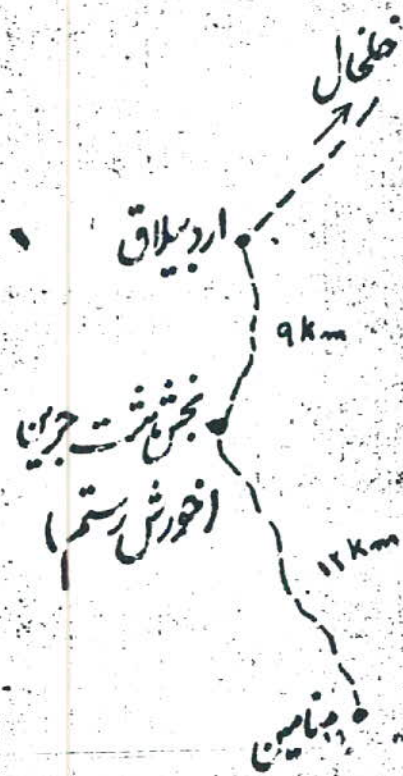 خلخال
اردبیلاق
۹ km
بخش هشت جین
(خورش رستم)
۱۲ km
برنامین